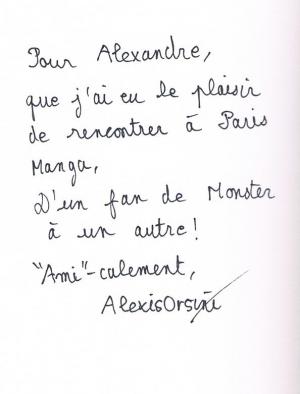 Pour Alexandre,
que j'ai eu le plaisir
de rencontrer à Paris
Manga,
D'un fan de Monster
à un autre!
"Ami"-calement,
AlexisOrsini